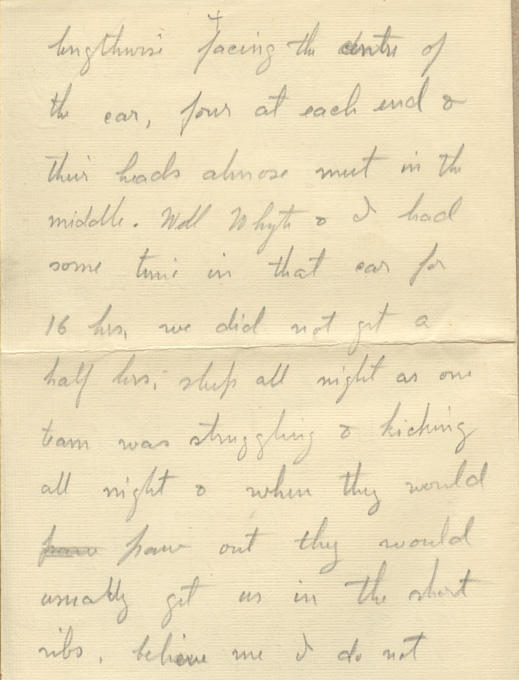 lengthwise facing the centre of
the car, four at each end &
their heads almose meet in the
middle. Well Whyte & I had
some time in that car for
16 hrs, we did not get a
half hrs; sleep all night as one
team was struggling & kicking
all night & when they would
paw paw out they would
usually get us in the short
ribs, believe me I do not